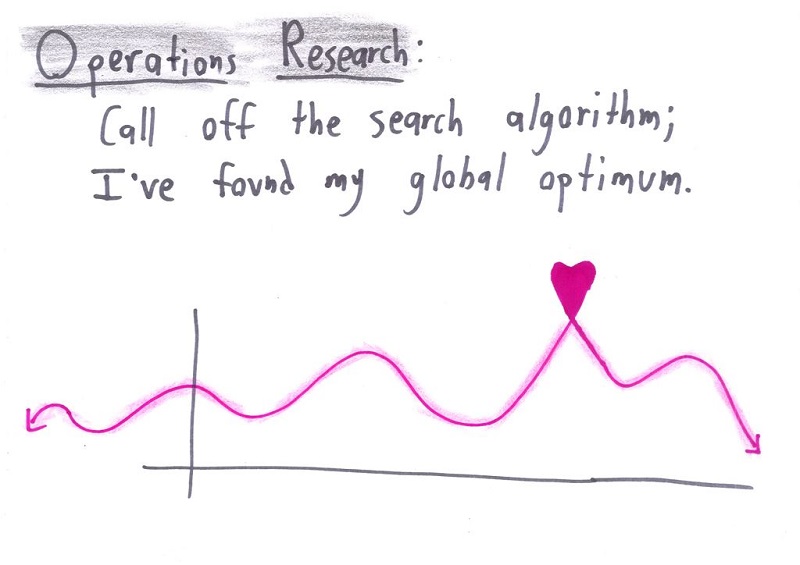 Operations Research:
Call off the search algorithm;
I've found my global optimum.